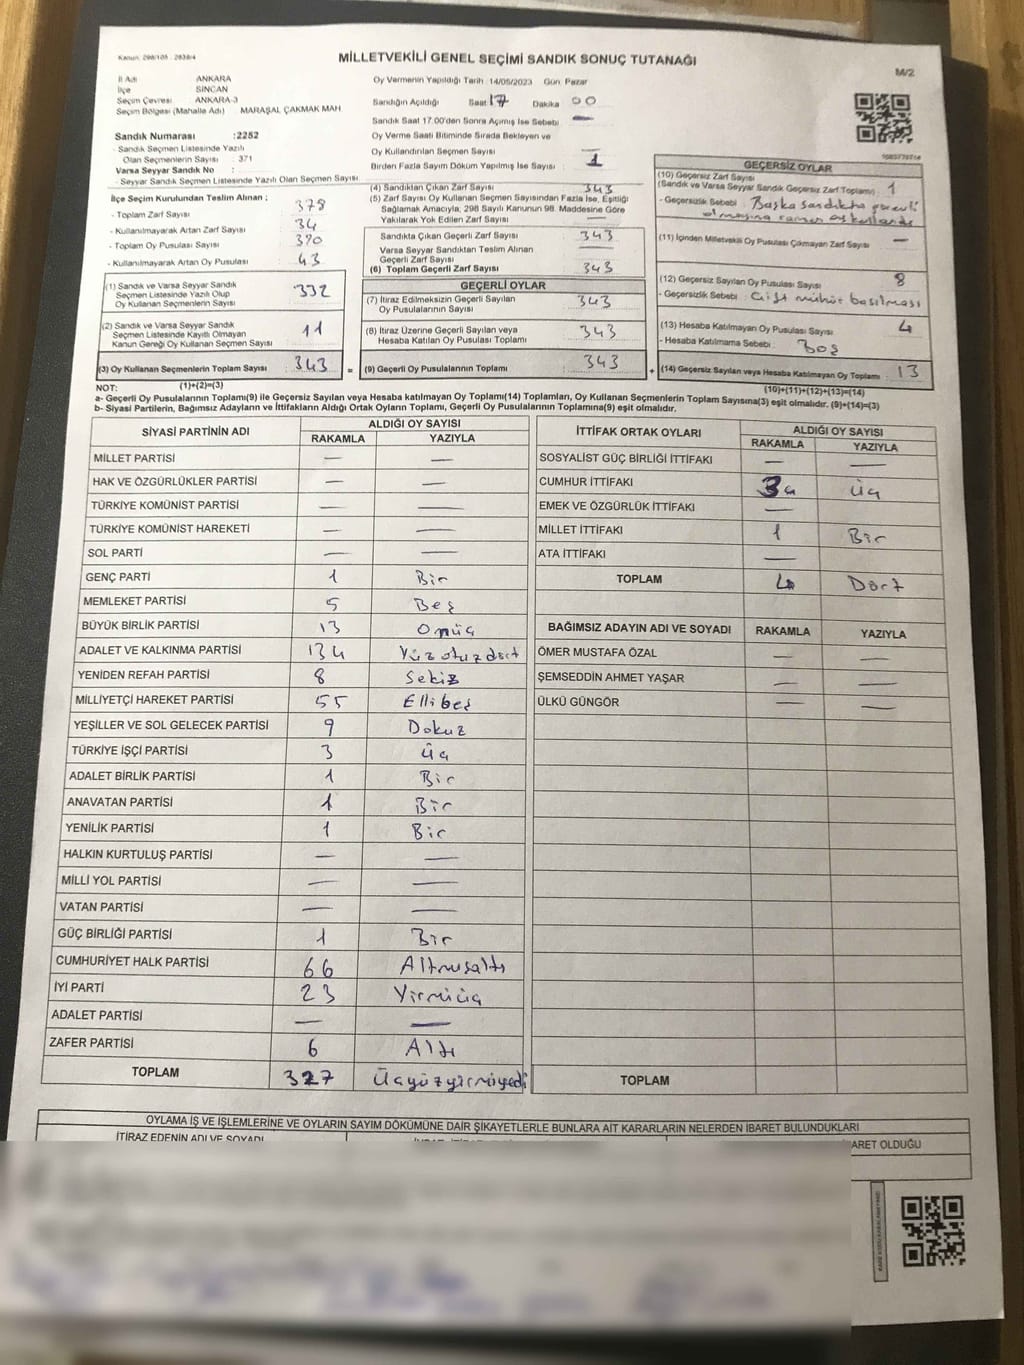 Kanun: 298/105 - 2839/4
MİLLETVEKİLİ GENEL SEÇİMİ SANDIK SONUÇ TUTANAĞI
M/2
İl Adı ANKARA
İlçe SİNCAN
Seçim Çevresi ANKARA-3
Seçim Bölgesi (Mahalle Adı) MARAŞAL ÇAKMAK MAH
Sandık Numarası :2252
- Sandık Seçmen Listesinde Yazılı
Olan Seçmenlerin Sayısı : 371
Varsa Seyyar Sandık No :
- Seyyar Sandık Seçmen Listesinde Yazılı Olan Seçmen Sayısı
Oy Vermenin Yapıldığı Tarih :14/05/2023 Gün: Pazar
Sandığın Açıldığı Saat 17 Dakika 00
Sandık Saat 17.00'den Sonra Açımış İse Sebebi —
Oy Verme Saati Bitiminde Sırada Bekleyen ve
Oy Kullandırılan Seçmen Sayısı —
Birden Fazla Sayım Döküm Yapılmış İse Sayısı 1
İlçe Seçim Kurulundan Teslim Alınan ;
- Toplam Zarf Sayısı 378
- Kullanılmayarak Artan Zarf Sayısı 34
- Toplam Oy Pusulası Sayısı 390
- Kullanılmayarak Artan Oy Pusulası 43
(1) Sandık ve Varsa Seyyar Sandık
Seçmen Listesinde Yazılı Olup
Oy Kullanan Seçmenlerin Sayısı 332
(2) Sandık ve Varsa Seyyar Sandık
Seçmen Listesinde Kayıtlı Olmayan
Kanun Gereği Oy Kullanan Seçmen Sayısı 11
(3) Oy Kullanan Seçmenlerin Toplam Sayısı 343 =
(1)+(2)=(3)
(4) Sandıktan Çıkan Zarf Sayısı 343
(5) Zarf Sayısı Oy Kullanan Seçmen Sayısından Fazla İse, Eşitliği
Sağlamak Amacıyla, 298 Sayılı Kanunun 98. Maddesine Göre
Yakılarak Yok Edilen Zarf Sayısı —
Sandıkta Çıkan Geçerli Zarf Sayısı 343
Varsa Seyyar Sandıktan Teslim Alınan
Geçerli Zarf Sayısı —
(6) Toplam Geçerli Zarf Sayısı 343
GEÇERLİ OYLAR
(7) İtiraz Edilmeksizin Geçerli Sayılan
Oy Pusulalarının Sayısı 343
(8) İtiraz Üzerine Geçerli Sayılan veya
Hesaba Katılan Oy Pusulası Toplamı 343
(9) Geçerli Oy Pusulalarının Toplamı 343 +
GEÇERSİZ OYLAR
(10) Geçersiz Zarf Sayısı
(Sandık ve Varsa Seyyar Sandık Geçersiz Zarf Toplamı) 1
- Geçersizlik Sebebi : Başka sandıkta görevli
olmasına ramen oy kullandı
(11) İçinden Milletvekili Oy Pusulası Çıkmayan Zarf Sayısı —
(12) Geçersiz Sayılan Oy Pusulası Sayısı 8
- Geçersizlik Sebebi : Çift mühür basılması
(13) Hesaba Katılmayan Oy Pusulası Sayısı 4
- Hesaba Katılmama Sebebi : Boş
(14) Geçersiz Sayılan veya Hesaba Katılmayan Oy Toplamı 13
(10)+(11)+(12)+(13)=(14)
NOT:
a- Geçerli Oy Pusulalarının Toplamı(9) ile Geçersiz Sayılan veya Hesaba katılmayan Oy Toplamı(14) Toplamları, Oy Kullanan Seçmenlerin Toplam Sayısına(3) eşit olmalıdır. (9)+(14)=(3)
b- Siyasi Partilerin, Bağımsız Adayların ve İttifakların Aldığı Ortak Oyların Toplamı, Geçerli Oy Pusulalarının Toplamına(9) eşit olmalıdır.
SİYASİ PARTİNİN ADI ALDIĞI OY SAYISI
RAKAMLA YAZIYLA
MİLLET PARTİSİ — —
HAK VE ÖZGÜRLÜKLER PARTİSİ — —
TÜRKİYE KOMÜNİST PARTİSİ — —
TÜRKİYE KOMÜNİST HAREKETİ — —
SOL PARTİ — —
GENÇ PARTİ 1 Bir
MEMLEKET PARTİSİ 5 Beş
BÜYÜK BİRLİK PARTİSİ 13 Onüç
ADALET VE KALKINMA PARTİSİ 134 Yüzotuzdört
YENİDEN REFAH PARTİSİ 8 Sekiz
MİLLİYETÇİ HAREKET PARTİSİ 55 Ellibeş
YEŞİLLER VE SOL GELECEK PARTİSİ 9 Dokuz
TÜRKİYE İŞÇİ PARTİSİ 3 Üç
ADALET BİRLİK PARTİSİ 1 Bir
ANAVATAN PARTİSİ 1 Bir
YENİLİK PARTİSİ 1 Bir
HALKIN KURTULUŞ PARTİSİ — —
MİLLİ YOL PARTİSİ — —
VATAN PARTİSİ — —
GÜÇ BİRLİĞİ PARTİSİ 1 Bir
CUMHURİYET HALK PARTİSİ 66 Altmışaltı
İYİ PARTİ 23 Yirmiüç
ADALET PARTİSİ — —
ZAFER PARTİSİ 6 Altı
TOPLAM 327 Üçyüzyirmiyedi
İTTİFAK ORTAK OYLARI ALDIĞI OY SAYISI
RAKAMLA YAZIYLA
SOSYALİST GÜÇ BİRLİĞİ İTTİFAKI — —
CUMHUR İTTİFAKI 3 Üç
EMEK VE ÖZGÜRLÜK İTTİFAKI —
MİLLET İTTİFAKI 1 Bir
ATA İTTİFAKI —
TOPLAM 4 Dört
BAĞIMSIZ ADAYIN ADI VE SOYADI RAKAMLA YAZIYLA
ÖMER MUSTAFA ÖZAL — —
ŞEMSEDDİN AHMET YAŞAR — —
ÜLKÜ GÜNGÖR — —
TOPLAM
OYLAMA İŞ VE İŞLEMLERİNE VE OYLARIN SAYIM DÖKÜMÜNE DAİR ŞİKAYETLERLE BUNLARA AİT KARARLARIN NELERDEN İBARET BULUNDUKLARI
İTİRAZ EDENİN ADI VE SOYADI
OLDUĞU